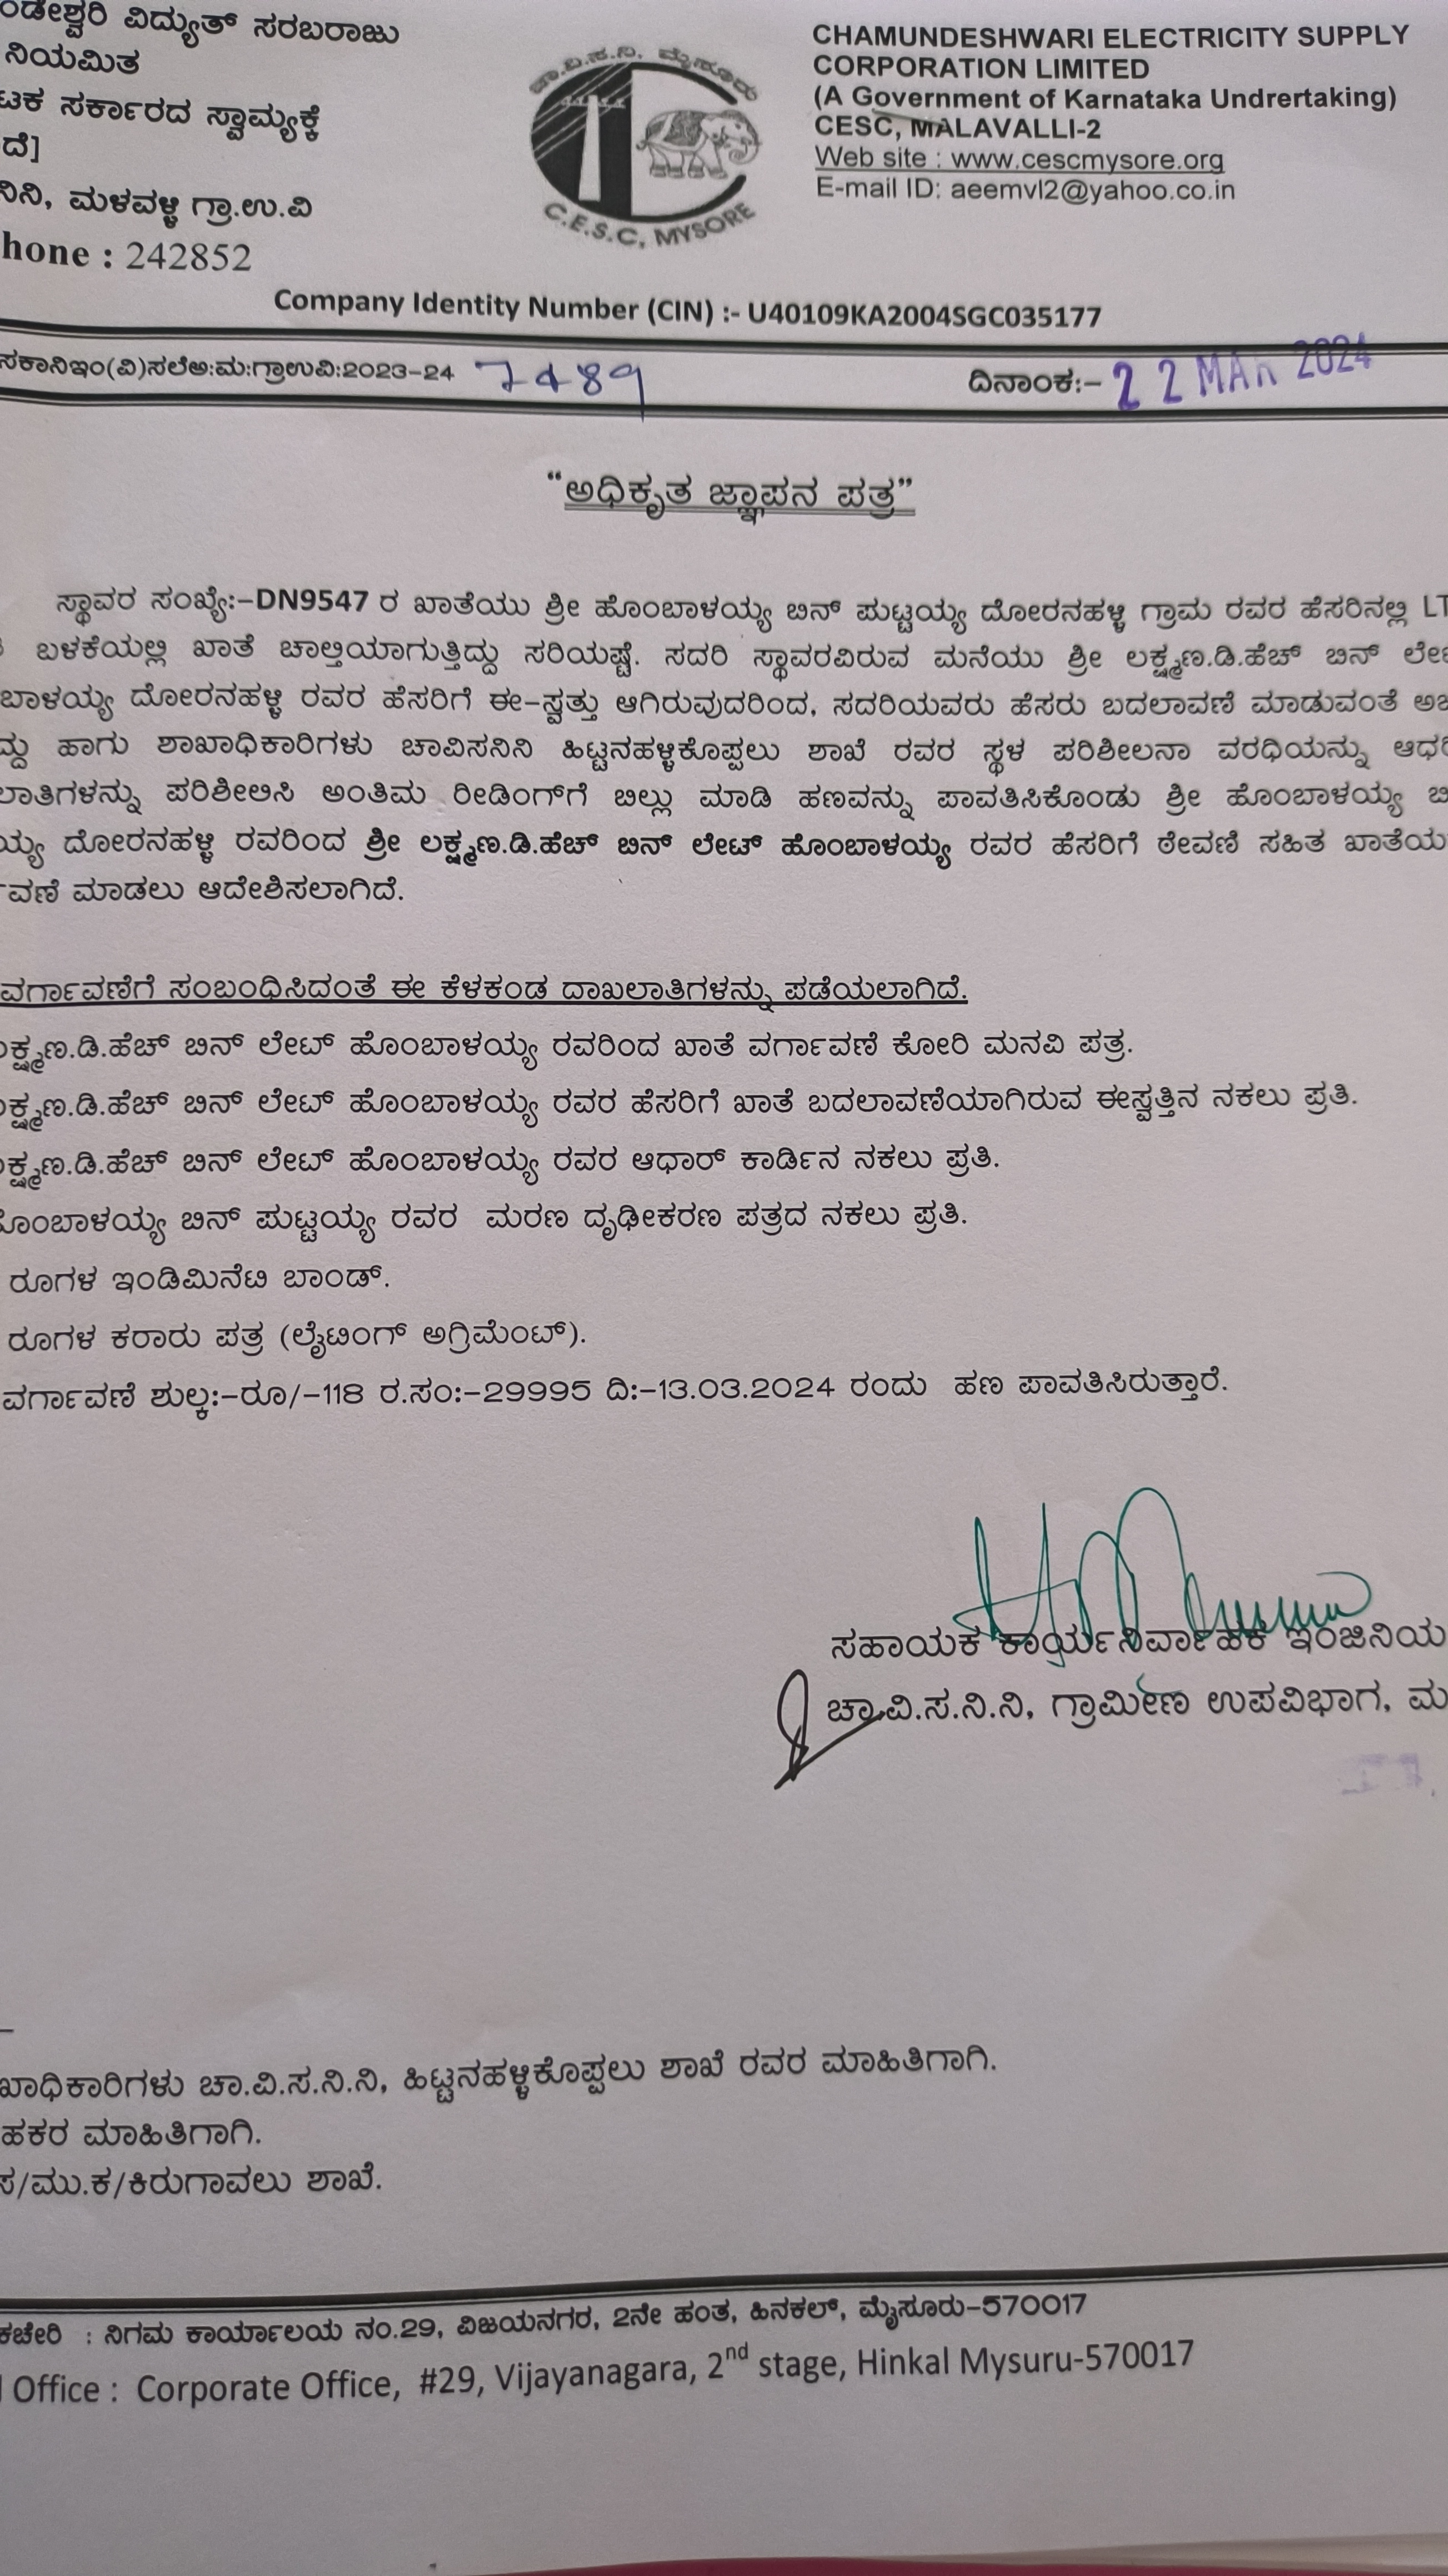 ಂಡೇಶ್ವರಿ ವಿದ್ಯುತ್ ಸರಬರಾಜು
ನಿಯಮಿತ
ಟಕ ಸರ್ಕಾರದ ಸ್ವಾಮ್ಯಕ್ಕೆ
ದೆ]
ನಿನಿ, ಮಳವಳ್ಳಿ ಗ್ರಾ.ಉ.ವಿ
hone : 242852
ಚಾ.ವಿ.ಸ.ನಿ. ಮೈಸೂರು
C.E.S.C, MYSORE
CHAMUNDESHWARI ELECTRICITY SUPPLY
CORPORATION LIMITED
(A Government of Karnataka Undrertaking)
CESC, MALAVALLI-2
Web site : www.cescmysore.org
E-mail ID: aeemvl2@yahoo.co.in
Company Identity Number (CIN) :- U40109KA2004SGC035177
ಸಕಾನಿಇಂ(ವಿ)ಸಲೆಅ:ಮ:ಗ್ರಾಉವಿ:2023-24 7489 ದಿನಾಂಕ:- 22 MAR 2024
“ಅಧಿಕೃತ ಜ್ಞಾಪನ ಪತ್ರ”
ಸ್ಥಾವರ ಸಂಖ್ಯೆ:-DN9547 ರ ಖಾತೆಯು ಶ್ರೀ ಹೊಂಬಾಳಯ್ಯ ಬಿನ್ ಪುಟ್ಟಯ್ಯ ದೋರನಹಳ್ಳಿ ಗ್ರಾಮ ರವರ ಹೆಸರಿನಲ್ಲಿ LT
ಬಳಕೆಯಲ್ಲಿ ಖಾತೆ ಚಾಲ್ತಿಯಾಗುತ್ತಿದ್ದು ಸರಿಯಷ್ಟೆ. ಸದರಿ ಸ್ಥಾವರವಿರುವ ಮನೆಯು ಶ್ರೀ ಲಕ್ಷ್ಮಣ.ಡಿ.ಹೆಚ್ ಬಿನ್ ಲೇ
ಬಾಳಯ್ಯ ದೋರನಹಳ್ಳಿ ರವರ ಹೆಸರಿಗೆ ಈ-ಸ್ವತ್ತು ಆಗಿರುವುದರಿಂದ, ಸದರಿಯವರು ಹೆಸರು ಬದಲಾವಣೆ ಮಾಡುವಂತೆ ಅ
ದ್ದು ಹಾಗು ಶಾಖಾಧಿಕಾರಿಗಳು ಚಾವಿಸನಿನಿ ಹಿಟ್ಟನಹಳ್ಳಿಕೊಪ್ಪಲು ಶಾಖೆ ರವರ ಸ್ಥಳ ಪರಿಶೀಲನಾ ವರಧಿಯನ್ನು ಆಧ
ಲಾತಿಗಳನ್ನು ಪರಿಶೀಲಿಸಿ ಅಂತಿಮ ರೀಡಿಂಗ್‌ಗೆ ಬಿಲ್ಲು ಮಾಡಿ ಹಣವನ್ನು ಪಾವತಿಸಿಕೊಂಡು ಶ್ರೀ ಹೊಂಬಾಳಯ್ಯ ಬಿ
ಯ್ಯ ದೋರನಹಳ್ಳಿ ರವರಿಂದ ಶ್ರೀ ಲಕ್ಷ್ಮಣ.ಡಿ.ಹೆಚ್ ಬಿನ್ ಲೇಟ್ ಹೊಂಬಾಳಯ್ಯ ರವರ ಹೆಸರಿಗೆ ಠೇವಣಿ ಸಹಿತ ಖಾತೆಯ
ವಣೆ ಮಾಡಲು ಆದೇಶಿಸಲಾಗಿದೆ.
ವರ್ಗಾವಣೆಗೆ ಸಂಬಂಧಿಸಿದಂತೆ ಈ ಕೆಳಕಂಡ ದಾಖಲಾತಿಗಳನ್ನು ಪಡೆಯಲಾಗಿದೆ.
ಕ್ಷ್ಮಣ.ಡಿ.ಹೆಚ್ ಬಿನ್ ಲೇಟ್ ಹೊಂಬಾಳಯ್ಯ ರವರಿಂದ ಖಾತೆ ವರ್ಗಾವಣೆ ಕೋರಿ ಮನವಿ ಪತ್ರ.
ಕ್ಷ್ಮಣ.ಡಿ.ಹೆಚ್ ಬಿನ್ ಲೇಟ್ ಹೊಂಬಾಳಯ್ಯ ರವರ ಹೆಸರಿಗೆ ಖಾತೆ ಬದಲಾವಣೆಯಾಗಿರುವ ಈಸ್ವತ್ತಿನ ನಕಲು ಪ್ರತಿ.
ಕ್ಷ್ಮಣ.ಡಿ.ಹೆಚ್ ಬಿನ್ ಲೇಟ್ ಹೊಂಬಾಳಯ್ಯ ರವರ ಆಧಾರ್ ಕಾರ್ಡಿನ ನಕಲು ಪ್ರತಿ.
ೊಂಬಾಳಯ್ಯ ಬಿನ್ ಪುಟ್ಟಯ್ಯ ರವರ ಮರಣ ದೃಢೀಕರಣ ಪತ್ರದ ನಕಲು ಪ್ರತಿ.
ರೂಗಳ ಇಂಡಿಮಿನೆಟಿ ಬಾಂಡ್.
ರೂಗಳ ಕರಾರು ಪತ್ರ (ಲೈಟಿಂಗ್ ಅಗ್ರಿಮೆಂಟ್).
ವರ್ಗಾವಣೆ ಶುಲ್ಕ:-ರೂ/-118 ರ.ಸಂ:-29995 ದಿ:-13.03.2024 ರಂದು ಹಣ ಪಾವತಿಸಿರುತ್ತಾರೆ.
ಸಹಾಯಕ ಕಾರ್ಯನಿರ್ವಾಹಕ ಇಂಜಿನಿಯ
ಚಾ.ವಿ.ಸ.ನಿ.ನಿ, ಗ್ರಾಮೀಣ ಉಪವಿಭಾಗ, ಮ
ಖಾಧಿಕಾರಿಗಳು ಚಾ.ವಿ.ಸ.ನಿ.ನಿ, ಹಿಟ್ಟನಹಳ್ಳಿಕೊಪ್ಪಲು ಶಾಖೆ ರವರ ಮಾಹಿತಿಗಾಗಿ.
ಹಕರ ಮಾಹಿತಿಗಾಗಿ.
ಸ/ಮು.ಕ/ಕಿರುಗಾವಲು ಶಾಖೆ.
ಕಚೇರಿ : ನಿಗಮ ಕಾರ್ಯಾಲಯ ನಂ.29, ವಿಜಯನಗರ, 2ನೇ ಹಂತ, ಹಿನಕಲ್, ಮೈಸೂರು-570017
Office : Corporate Office, #29, Vijayanagara, 2nd stage, Hinkal Mysuru-570017